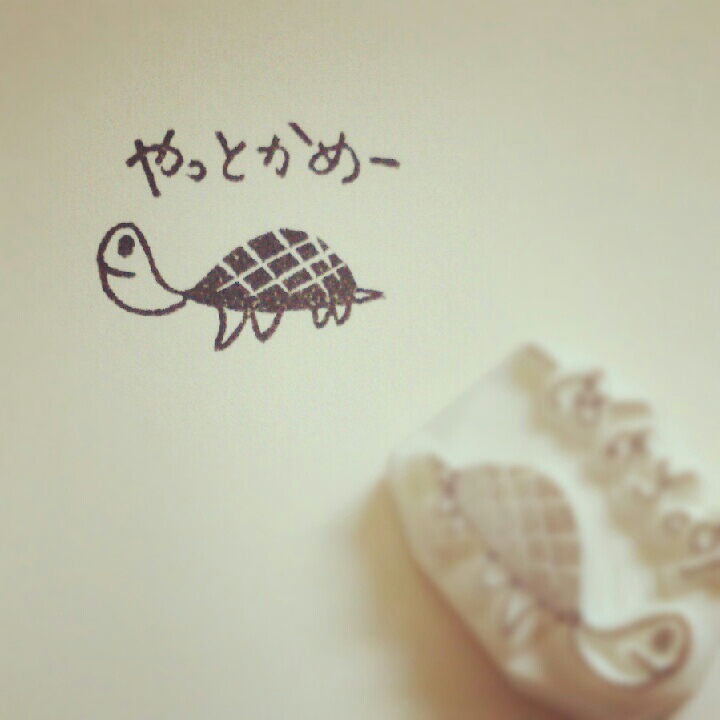 やっとかめー